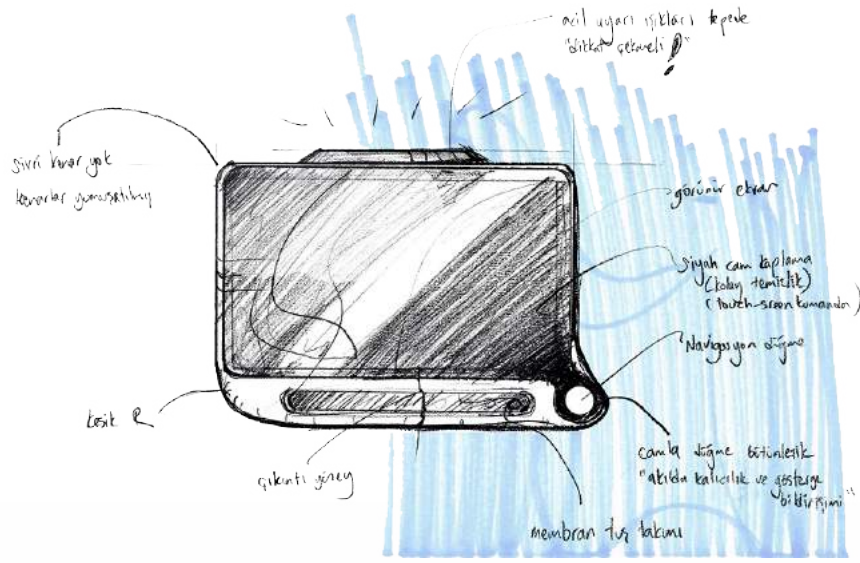 acil uyarı ışıkları tepede
"dikkat çekmeli!"
sivri kenar yok
kenarlar yumuşatılmış
görünür ekran
siyah cam kaplama
(kolay temizlik)
(touch-sreen kumanda)
Navigasyon düğme
kesik R
çıkıntı yüzey
camla düğme bütünleşik
"akılda kalıcılık ve gösterge
bildirişimi"
membran tuş takımı